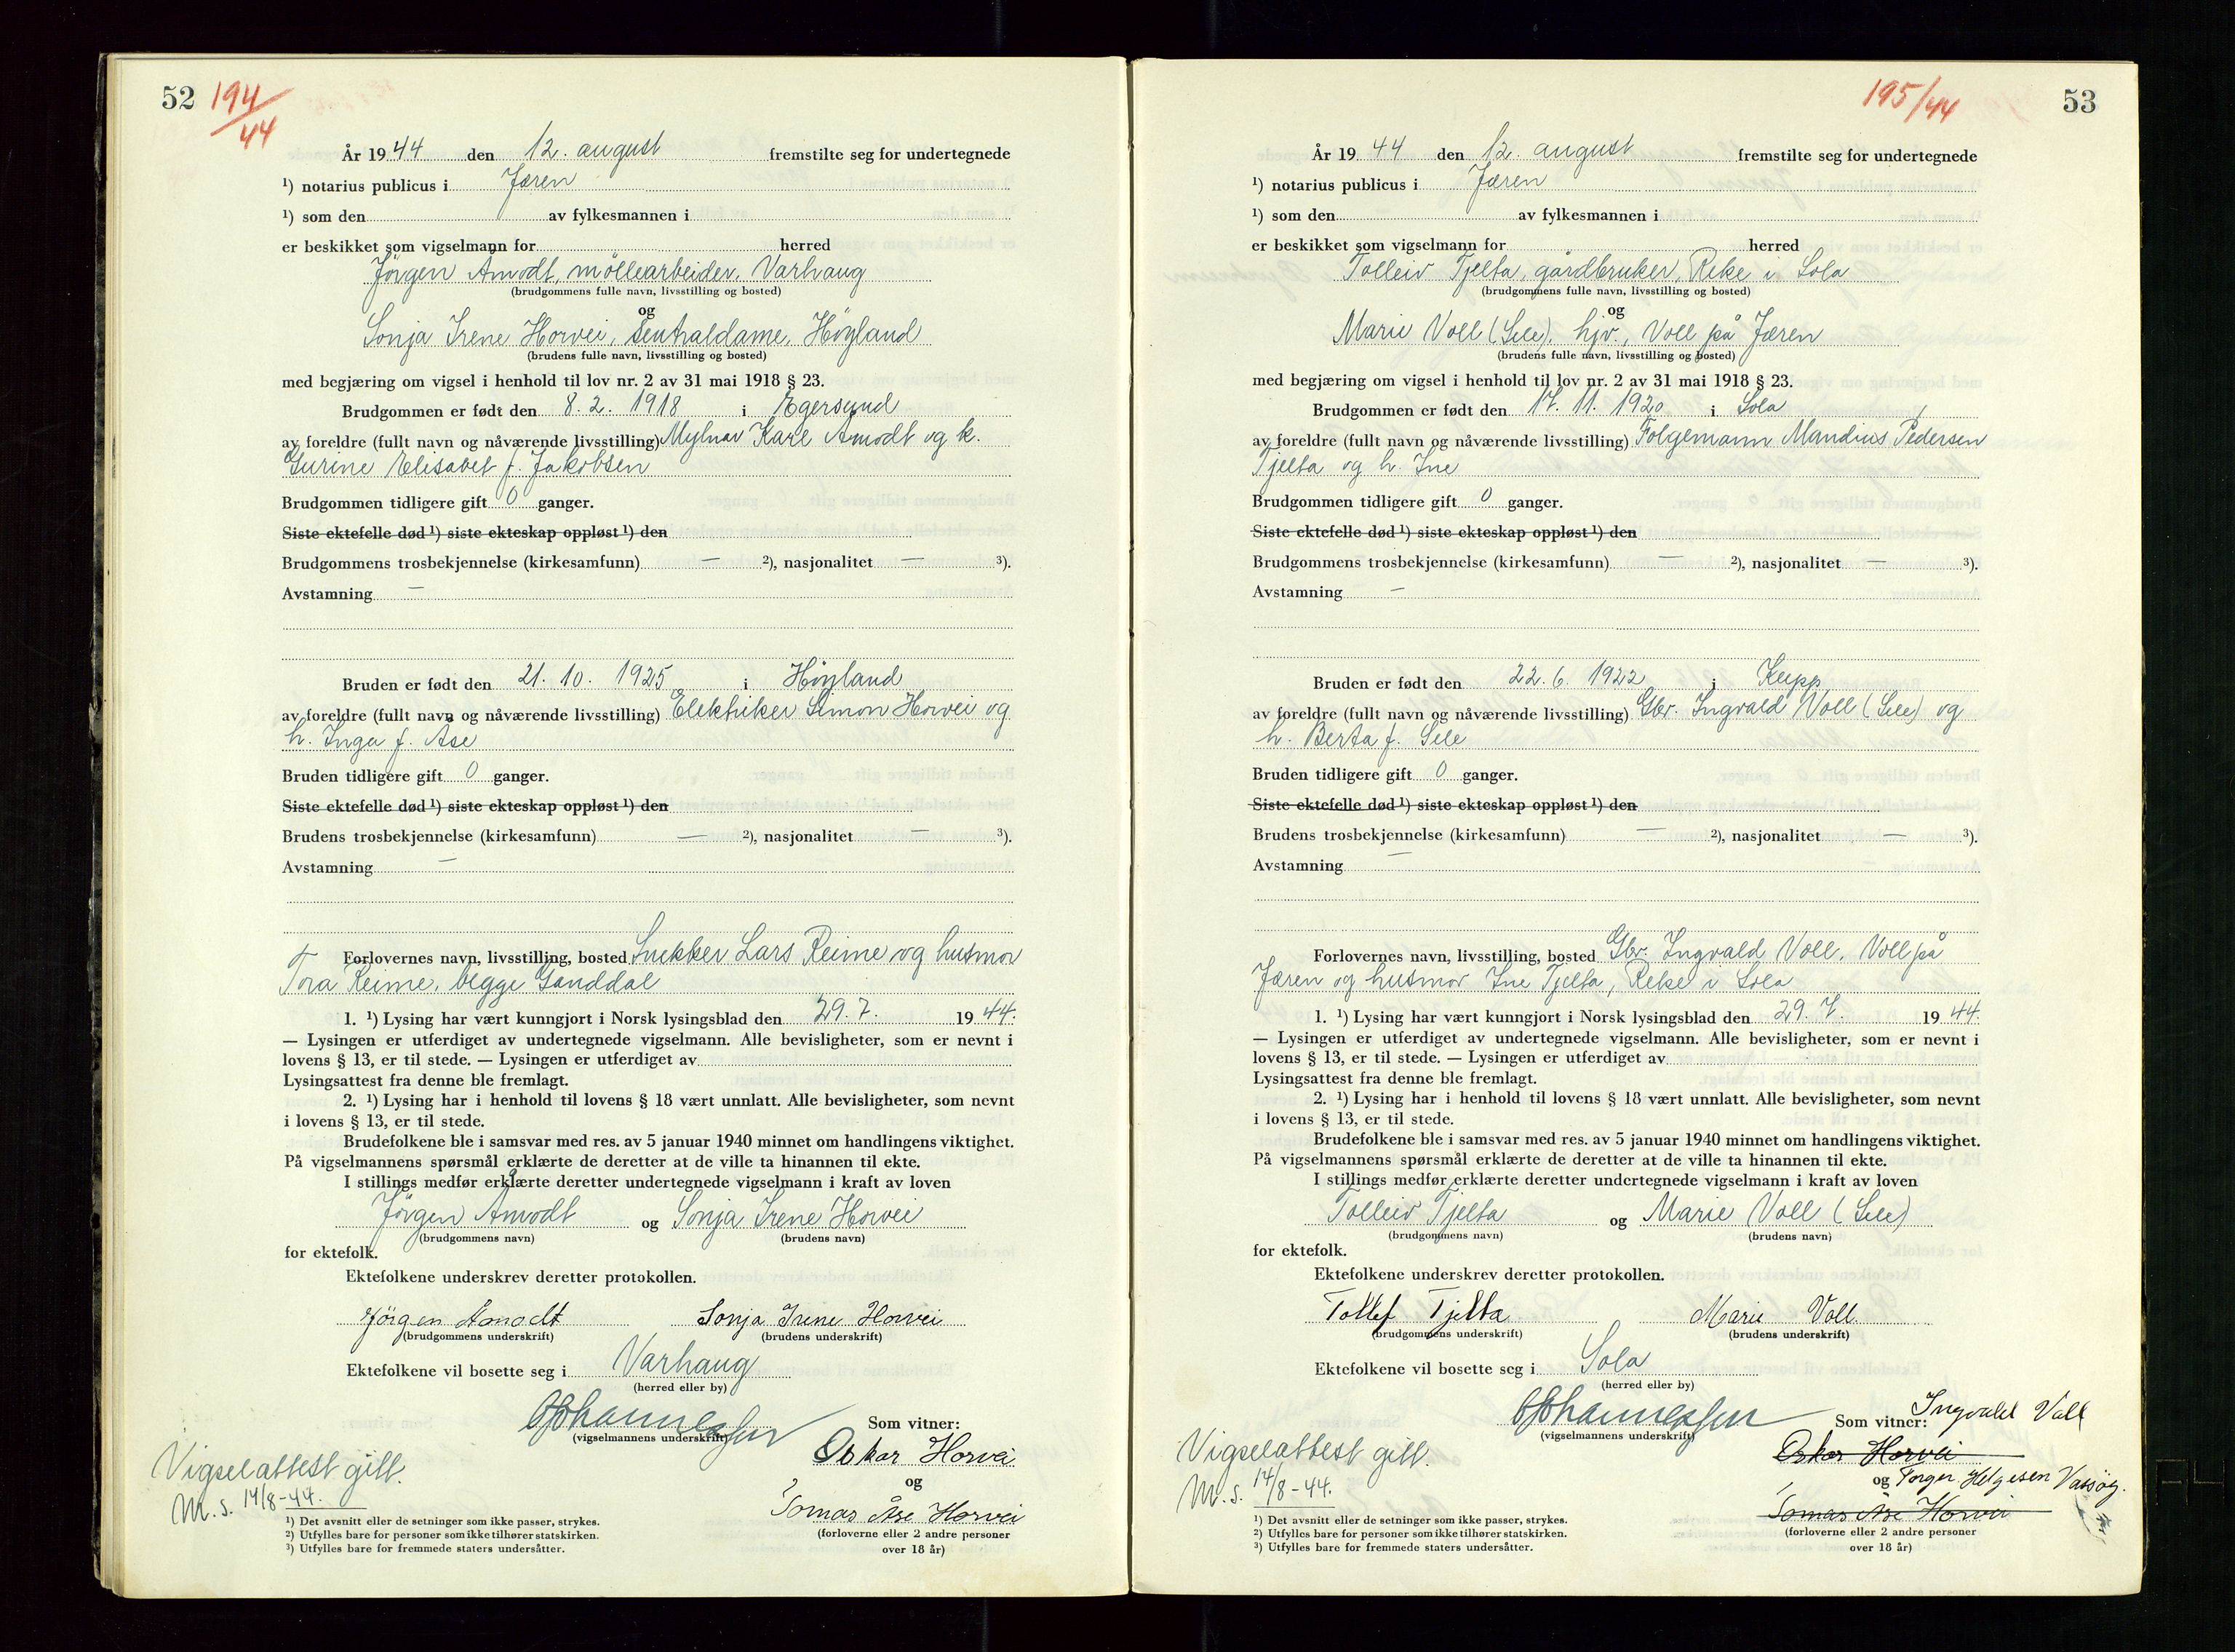 52 194/44
År 1944 den 12. august fremstilte seg for undertegnede
¹) notarius publicus i Jæren
¹) som den av fylkesmannen i
er beskikket som vigselmann for herred
Jörgen Åmodt, möllearbeider, Varhaug
(brudgommens fulle navn, livsstilling og bosted)
og
Sonja Irene Horvei, sentraldame, Höyland
(brudens fulle navn, livsstilling og bosted)
med begjæring om vigsel i henhold til lov nr. 2 av 31 mai 1918 § 23.
Brudgommen er født den 8. 2. 1918 i Egersund
av foreldre (fullt navn og nåværende livsstilling) Mylnar Karl Åmodt og h.
Gurine Elisabet f. Jakobsen
Brudgommen tidligere gift 0 ganger.
Siste ektefelle død ¹) siste ekteskap oppløst ¹) den
Brudgommens trosbekjennelse (kirkesamfunn) — ²), nasjonalitet — ³).
Avstamning —
Bruden er født den 21. 10. 1925 i Höyland
av foreldre (fullt navn og nåværende livsstilling) Elektriker Simon Horvei og
h. Inga f. Åse
Bruden tidligere gift 0 ganger.
Siste ektefelle død ¹) siste ekteskap oppløst ¹) den
Brudens trosbekjennelse (kirkesamfunn) — ²), nasjonalitet — ³).
Avstamning —
Forlovernes navn, livsstilling, bosted Snekker Lars Reime og husmor
Tora Reime, begge Ganddal
1. ¹) Lysing har vært kunngjort i Norsk lysingsblad den 29. 7. 1944.
— Lysingen er utferdiget av undertegnede vigselmann. Alle bevisligheter, som er nevnt i
lovens § 13, er til stede. — Lysingen er utferdiget av
Lysingsattest fra denne ble fremlagt.
2. ¹) Lysing har i henhold til lovens § 18 vært unnlatt. Alle bevisligheter, som nevnt
i lovens § 13, er til stede.
Brudefolkene ble i samsvar med res. av 5 januar 1940 minnet om handlingens viktighet.
På vigselmannens spørsmål erklærte de deretter at de ville ta hinannen til ekte.
I stillings medfør erklærte deretter undertegnede vigselmann i kraft av loven
Jörgen Åmodt og Sonja Irene Horvei
(brudgommens navn) (brudens navn)
for ektefolk.
Ektefolkene underskrev deretter protokollen.
Jörgen Åmodt Sonja Irene Horvei
(brudgommens underskrift) (brudens underskrift)
Ektefolkene vil bosette seg i Varhaug
(herred eller by)
Som vitner:
(vigselmannens underskrift)
Oskar Horvei
og
Tomas Åse Horvei
(forloverne eller 2 andre personer
over 18 år)
Vigselattest gitt.
M. s. 14/8-44.
¹) Det avsnitt eller de setninger som ikke passer, strykes.
²) Utfylles bare for personer som ikke tilhører statskirken.
³) Utfylles bare for fremmede staters undersåtter.
195/44 53
År 1944 den 12. august fremstilte seg for undertegnede
¹) notarius publicus i Jæren
¹) som den av fylkesmannen i
er beskikket som vigselmann for herred
Tolleiv Tjelta, gårdbruker, Reke i Sola
(brudgommens fulle navn, livsstilling og bosted)
og
Marie Voll (Sele), hjv., Voll på Jæren
(brudens fulle navn, livsstilling og bosted)
med begjæring om vigsel i henhold til lov nr. 2 av 31 mai 1918 § 23.
Brudgommen er født den 17. 11. 1920 i Sola
av foreldre (fullt navn og nåværende livsstilling) Følgemann Mandius Pedersen
Tjelta og h. Ine
Brudgommen tidligere gift 0 ganger.
Siste ektefelle død ¹) siste ekteskap oppløst ¹) den
Brudgommens trosbekjennelse (kirkesamfunn) — ²), nasjonalitet — ³).
Avstamning —
Bruden er født den 22. 6. 1922 i Klepp
av foreldre (fullt navn og nåværende livsstilling) Gbr. Ingvald Voll (Sele) og
h. Berta f. Sele
Bruden tidligere gift 0 ganger.
Siste ektefelle død ¹) siste ekteskap oppløst ¹) den
Brudens trosbekjennelse (kirkesamfunn) — ²), nasjonalitet — ³).
Avstamning —
Forlovernes navn, livsstilling, bosted Gbr. Ingvald Voll, Voll på
Jæren og husmor Ine Tjelta, Reke i Sola
1. ¹) Lysing har vært kunngjort i Norsk lysingsblad den 29. 7. 1944.
— Lysingen er utferdiget av undertegnede vigselmann. Alle bevisligheter, som er nevnt i
lovens § 13, er til stede. — Lysingen er utferdiget av
Lysingsattest fra denne ble fremlagt.
2. ¹) Lysing har i henhold til lovens § 18 vært unnlatt. Alle bevisligheter, som nevnt
i lovens § 13, er til stede.
Brudefolkene ble i samsvar med res. av 5 januar 1940 minnet om handlingens viktighet.
På vigselmannens spørsmål erklærte de deretter at de ville ta hinannen til ekte.
I stillings medfør erklærte deretter undertegnede vigselmann i kraft av loven
Tolleiv Tjelta og Marie Voll (Sele)
(brudgommens navn) (brudens navn)
for ektefolk.
Ektefolkene underskrev deretter protokollen.
Tollef Tjelta Marie Voll
(brudgommens underskrift) (brudens underskrift)
Ektefolkene vil bosette seg i Sola
(herred eller by)
Som vitner: Ingvald Voll
(vigselmannens underskrift)
Oskar Horvei
og Torger Helgesen
Tomas Åse Horvei
(forloverne eller 2 andre personer
over 18 år)
Vigselattest gitt.
M. s. 14/8-44.
¹) Det avsnitt eller de setninger som ikke passer, strykes.
²) Utfylles bare for personer som ikke tilhører statskirken.
³) Utfylles bare for fremmede staters undersåtter.